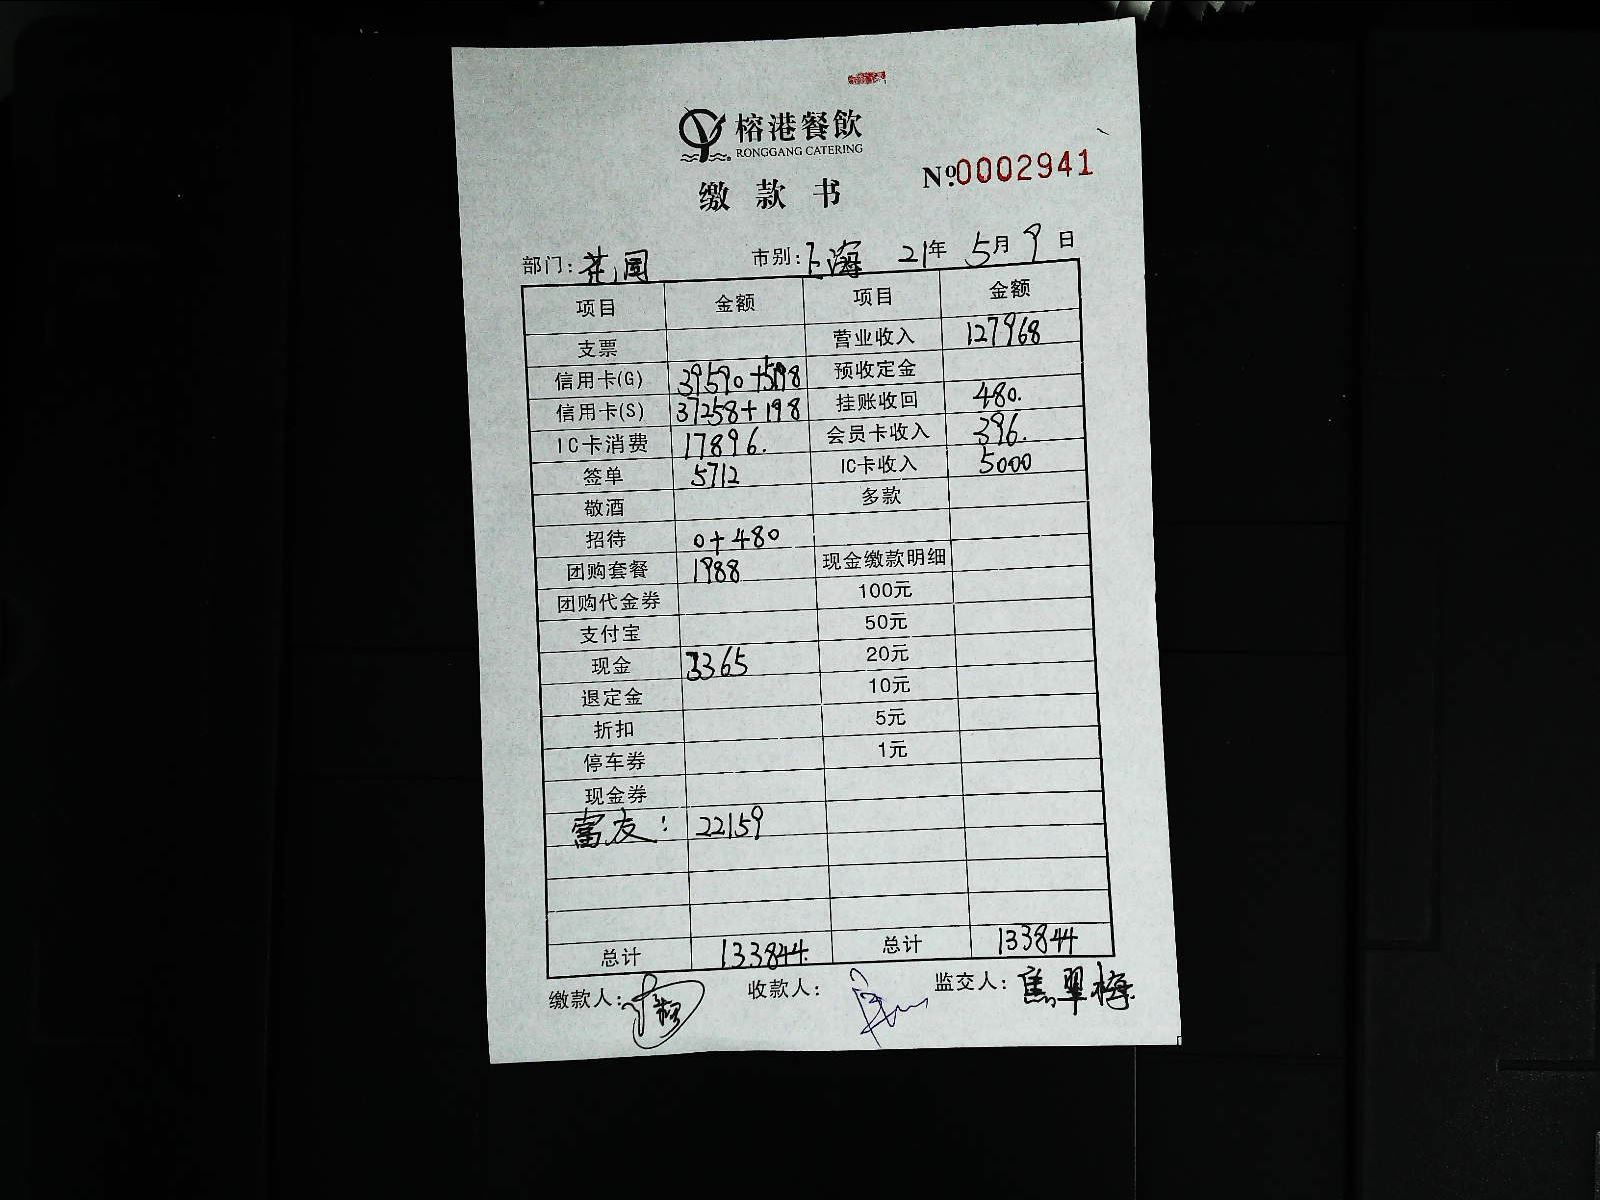 榕港餐飲
RONGGANG CATERING
缴款书
№0002941
部门: 花园 市别: 上海 21年 5月 9日
项目 金额 项目 金额
支票 营业收入 127968
信用卡(G) 39590+5198 预收定金
信用卡(S) 37258+198 挂账收回 480.
IC卡消费 17896. 会员卡收入 396.
签单 5712 IC卡收入 5000
敬酒 多款
招待 0+480
团购套餐 1988 现金缴款明细
团购代金券 100元
支付宝 50元
现金 3365 20元
退定金 10元
折扣 5元
停车券 1元
现金券
富友: 22159
总计 133844. 总计 133844
缴款人: 收款人: 监交人: 焦翠梅